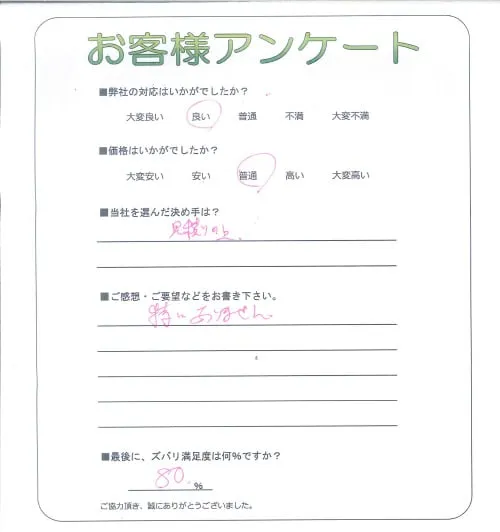 お客様アンケート
■弊社の対応はいかがでしたか？
大変良い 良い 普通 不満 大変不満
■価格はいかがでしたか？
大変安い 安い 普通 高い 大変高い
■当社を選んだ決め手は？
見積りの上、
■ご感想・ご要望などをお書き下さい。
特にありません。
■最後に、ズバリ満足度は何％ですか？
80. %
ご協力頂き、誠にありがとうございました。